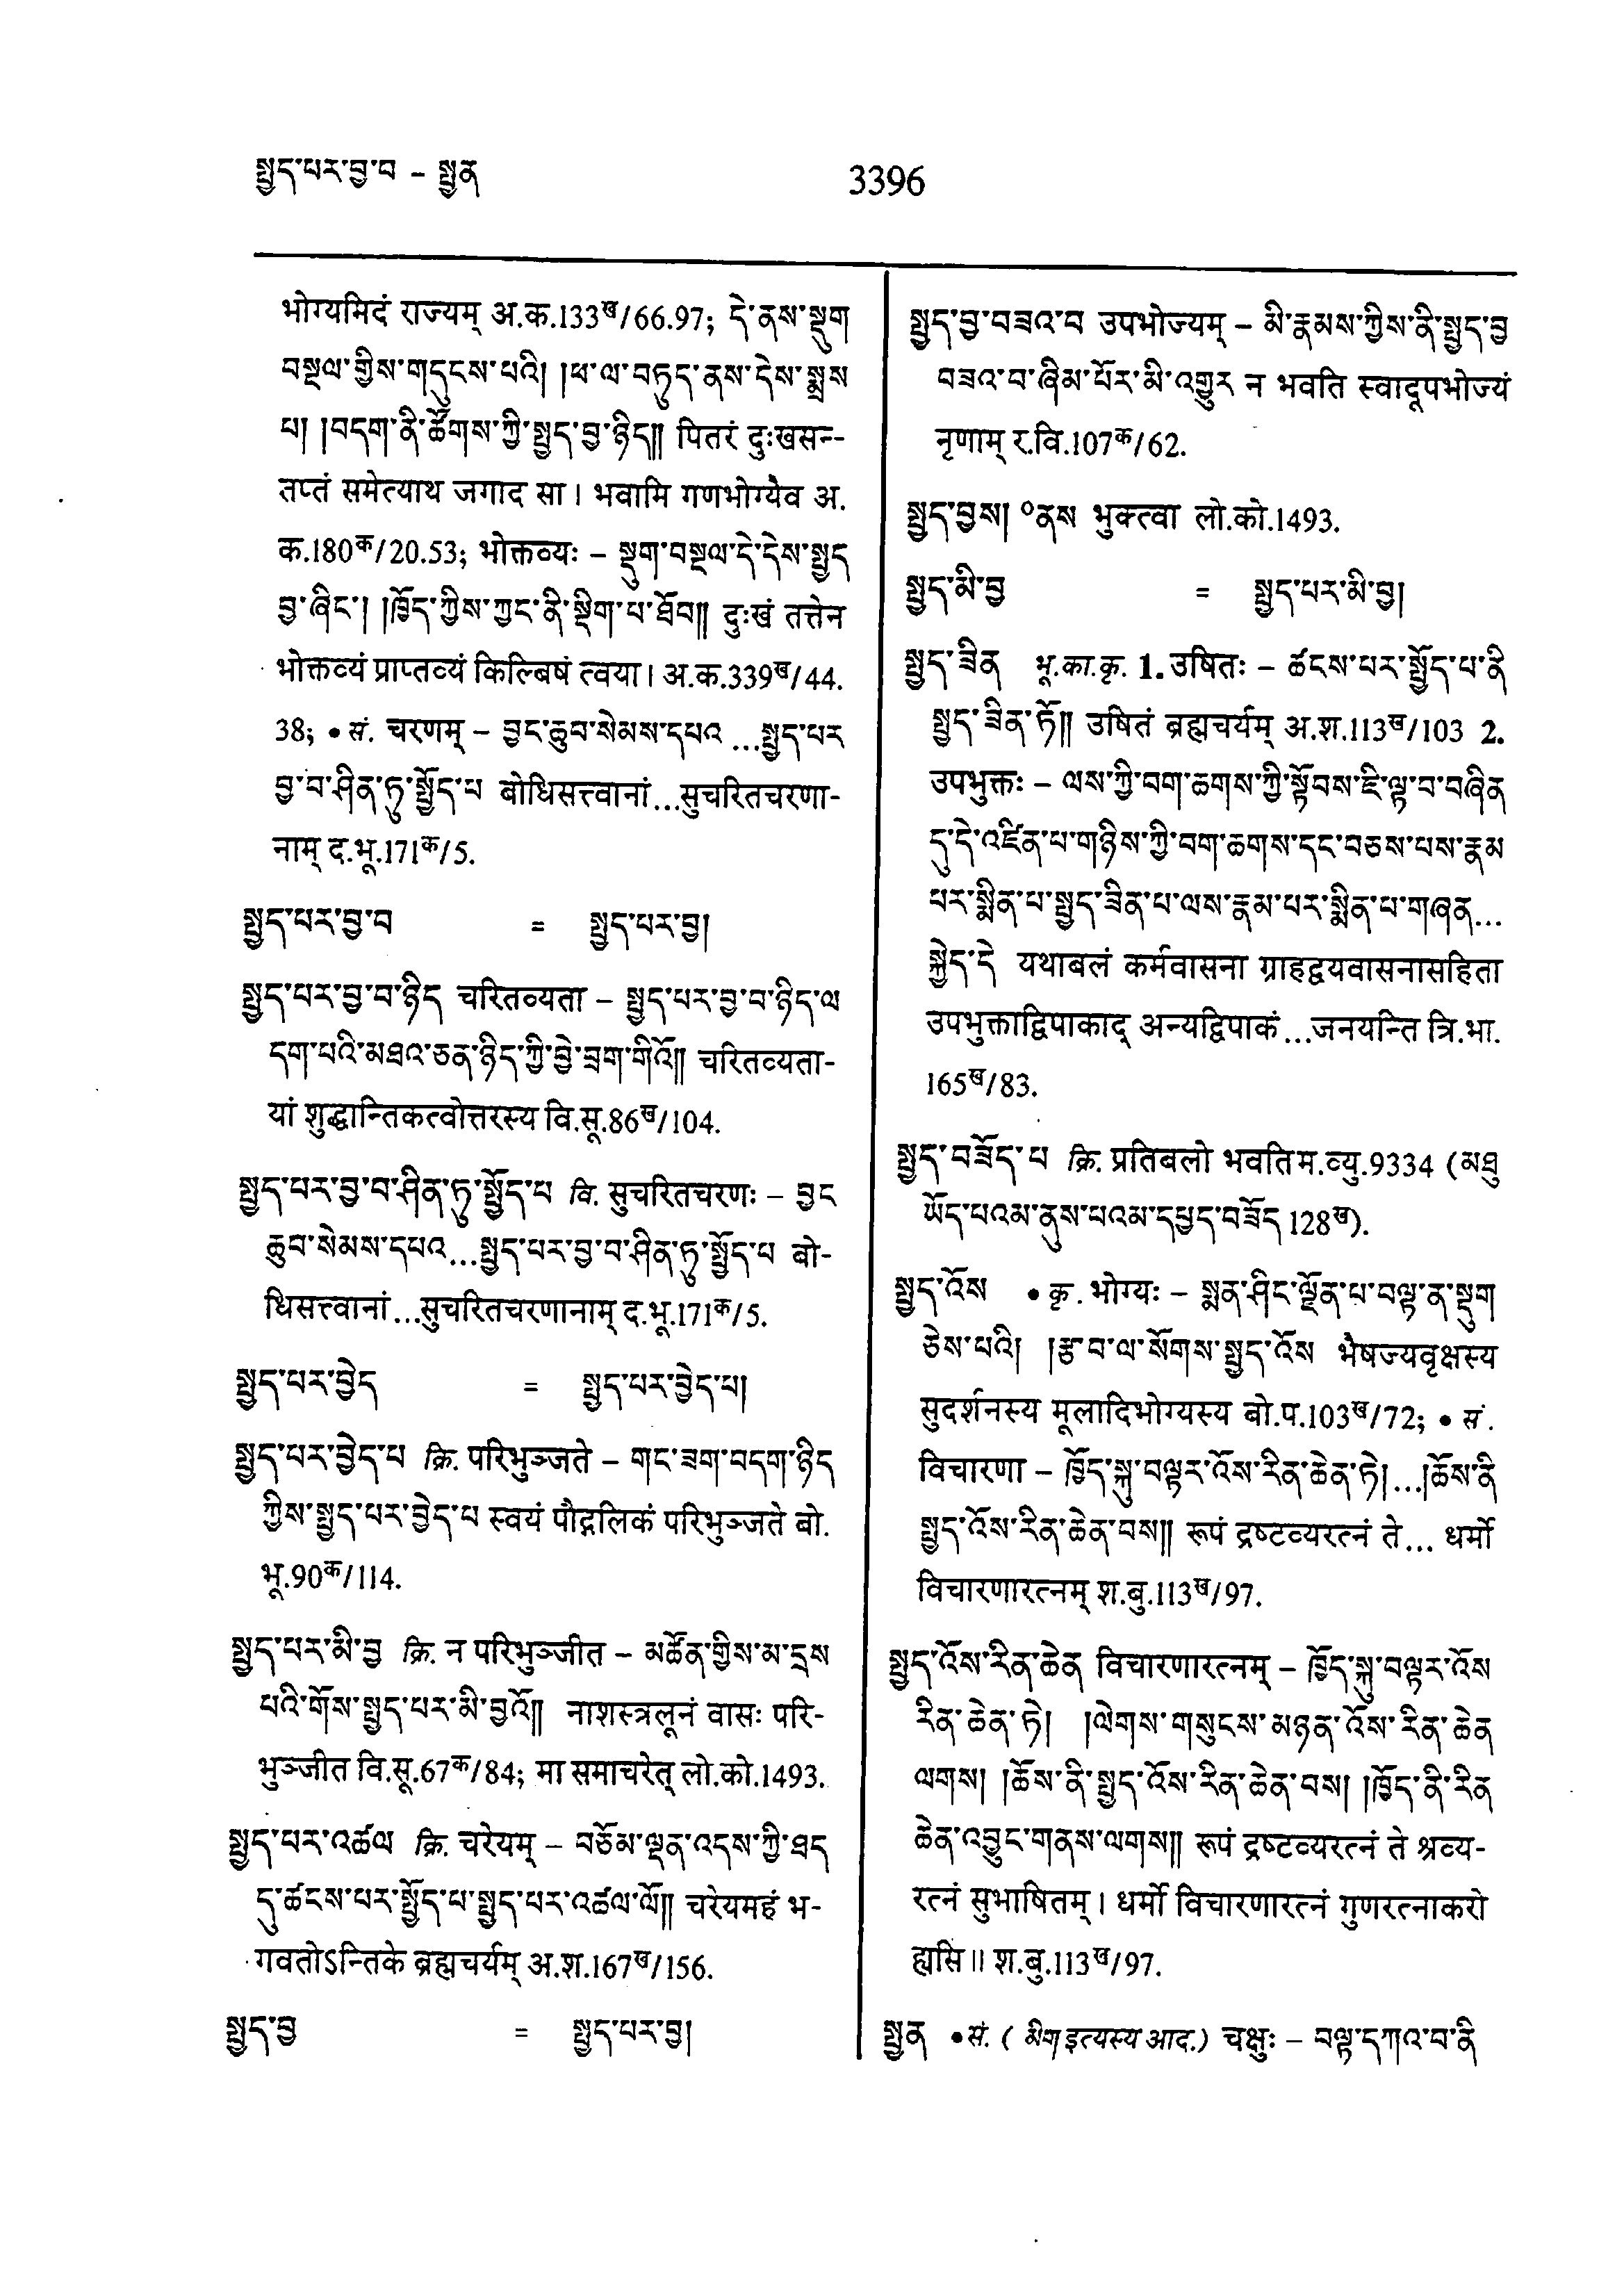 སྤྱད་པར་བྱ་བ – སྤྱན
3396
भोग्यमिदं राज्यम् अ.क.133ख/66.97; དེ་ནས་སྡུག
བསྔལ་གྱིས་གདུངས་པའི། །ཕ་ལ་བཏུད་ནས་དེས་སྨྲས
པ། །བདག་ནི་ཚོགས་ཀྱི་སྤྱད་བྱ་ཉིད།། पितरं दुःखसन्-
तप्तं समेत्याथ जगाद सा। भवामि गणभोग्यैव अ.
क.180क/20.53; भोक्तव्यः – སྡུག་བསྔལ་དེ་དེས་སྤྱད
བྱ་ཞིང་། །ཁྱོད་ཀྱིས་ཀྱང་ནི་སྡིག་པ་ཐོབ།། दुःखं तत्तेन
भोक्तव्यं प्राप्तव्यं किल्बिषं त्वया। अ.क.339ख/44.
38; • सं. चरणम् – བྱང་ཆུབ་སེམས་དཔའ ...སྤྱད་པར
བྱ་བ་ཤིན་ཏུ་སྤྱོད་པ बोधिसत्त्वानां...सुचरितचरणा-
नाम् द.भू.171क/5.
སྤྱད་པར་བྱ་བ = སྤྱད་པར་བྱ།
སྤྱད་པར་བྱ་བ་ཉིད चरितव्यता – སྤྱད་པར་བྱ་བ་ཉིད་ལ
དག་པའི་མཐའ་ཅན་ཉིད་ཀྱི་བྱེ་བྲག་གིའོ།། चरितव्यता-
यां शुद्धान्तिकत्वोत्तरस्य वि.सू.86ख/104.
སྤྱད་པར་བྱ་བ་ཤིན་ཏུ་སྤྱོད་པ वि. सुचरितचरणः – བྱང
ཆུབ་སེམས་དཔའ...སྤྱད་པར་བྱ་བ་ཤིན་ཏུ་སྤྱོད་པ बो-
धिसत्त्वानां...सुचरितचरणानाम् द.भू.171क/5.
སྤྱད་པར་བྱེད = སྤྱད་པར་བྱེད་པ།
སྤྱད་པར་བྱེད་པ क्रि. परिभुञ्जते – གང་ཟག་བདག་ཉིད
ཀྱིས་སྤྱད་པར་བྱེད་པ स्वयं पौद्गलिकं परिभुञ्जते बो.
भू.90क/114.
སྤྱད་པར་མི་བྱ क्रि. न परिभुञ्जीत – མཚོན་གྱིས་མ་དྲས
པའི་གོས་སྤྱད་པར་མི་བྱའོ།། नाशस्त्रलूनं वासः परि-
भुञ्जीत वि.सू.67क/84; मा समाचरेत् लो.को.1493.
སྤྱད་པར་འཚལ क्रि. चरेयम् – བཅོམ་ལྡན་འདས་ཀྱི་ཐད
དུ་ཚངས་པར་སྤྱོད་པ་སྤྱད་པར་འཚལ་ལོ།། चरेयमहं भ-
गवतोऽन्तिके ब्रह्मचर्यम् अ.श.167ख/156.
སྤྱད་བྱ = སྤྱད་པར་བྱ།
སྤྱད་བྱ་བཟའ་བ उपभोज्यम् – མི་རྣམས་ཀྱིས་ནི་སྤྱད་བྱ
བཟའ་བ་ཞིམ་པོར་མི་འགྱུར न भवति स्वादूपभोज्यं
नृणाम् र.वि.107क/62.
སྤྱད་བྱས། °ནས भुक्त्वा लो.को.1493.
སྤྱད་མི་བྱ = སྤྱད་པར་མི་བྱ།
སྤྱད་ཟིན भू.का.कृ. 1. उषितः – ཚངས་པར་སྤྱོད་པ་ནི
སྤྱད་ཟིན་ཏོ།། उषितं ब्रह्मचर्यम् अ.श.113ख/103 2.
उपभुक्तः – ལས་ཀྱི་བག་ཆགས་ཀྱི་སྟོབས་ཇི་ལྟ་བ་བཞིན
དུ་དེ་འཛིན་པ་གཉིས་ཀྱི་བག་ཆགས་དང་བཅས་པས་རྣམ
པར་སྨིན་པ་སྤྱད་ཟིན་པ་ལས་རྣམ་པར་སྨིན་པ་གཞན...
སྐྱེད་དེ यथाबलं कर्मवासना ग्राहद्वयवासनासहिता
उपभुक्ताद्विपाकाद् अन्यद्विपाकं...जनयन्ति त्रि.भा.
165ख/83.
སྤྱད་བཟོད་པ क्रि. प्रतिबलो भवति म.व्यु.9334 (མཐུ
ཡོད་པའམ་ནུས་པའམ་དཔྱད་བཟོད 128ख).
སྤྱད་འོས • कृ. भोग्यः – སྨན་ཤིང་ལྗོན་པ་བལྟ་ན་སྡུག
ཅེས་པའི། །རྩ་བ་ལ་སོགས་སྤྱད་འོས भैषज्यवृक्षस्य
सुदर्शनस्य मूलादिभोग्यस्य बो.प.103ख/72; • सं.
विचारणा – ཁྱོད་སྐུ་བལྟར་འོས་རིན་ཆེན་ཏེ།...།ཆོས་ནི
སྤྱད་འོས་རིན་ཆེན་བས།། रूपं द्रष्टव्यरत्नं ते... धर्मो
विचारणारत्नम् श.बु.113ख/97.
སྤྱད་འོས་རིན་ཆེན विचारणारत्नम् – ཁྱོད་སྐུ་བལྟར་འོས
རིན་ཆེན་ཏེ། །ལེགས་གསུངས་མཉན་འོས་རིན་ཆེན
ལགས། །ཆོས་ནི་སྤྱད་འོས་རིན་ཆེན་བས། །ཁྱོད་ནི་རིན
ཆེན་འབྱུང་གནས་ལགས།། रूपं द्रष्टव्यरत्नं ते श्रव्य-
रत्नं सुभाषितम्। धर्मो विचारणारत्नं गुणरत्नाकरो
ह्यसि॥ श.बु.113ख/97.
སྤྱན • सं. ( མིག इत्यस्य आद.) चक्षुः – བལྟ་དཀའ་བ་ནི